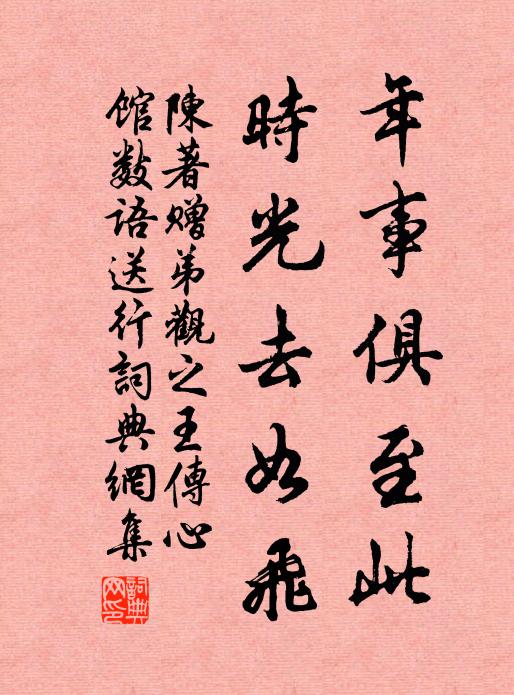 年事俱至此
時光去如飛
陳著贈弟觀之王傳心
館数語送行詞典網集
詞典網印